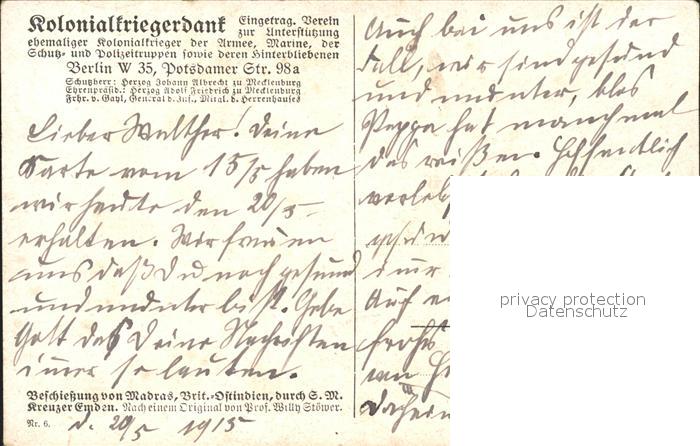 Kolonialkriegerdank Eingetrag. Verein
zur Unterstützung
ehemaliger Kolonialkrieger der Armee, Marine, der
Schutz- und Polizeitruppen sowie deren Hinterbliebenen
Berlin W 35, Potsdamer Str. 98a
Schutzherr: Herzog Johann Albrecht zu Mecklenburg
Ehrenpräsid.: Herzog Adolf Friedrich zu Mecklenburg
Frhr. v. Gayl, General d. Inf., Mitgl. d. Herrenhauses
Lieber Walther! Deine
Karte vom 15/5 haben
wir heute den 20/5
erhalten. Wir freuen
uns daß Du noch gesund
und munter bist. Gebe
Gott das Deine Nachrichten
imer so lauten.
Beschießung von Madras, Brit.-Ostindien, durch S. M.
Kreuzer Emden. Nach einem Original von Prof. Willy Stöwer.
Nr. 6. d. 20/5 1915
Auch bei uns ist der
Fall, wir sind gesund
und munter, blos
Pappa hat manchmal
das reißen. Hoffentlich
imer
Auch
frohes
Daheim
privacy protection
Datenschutz